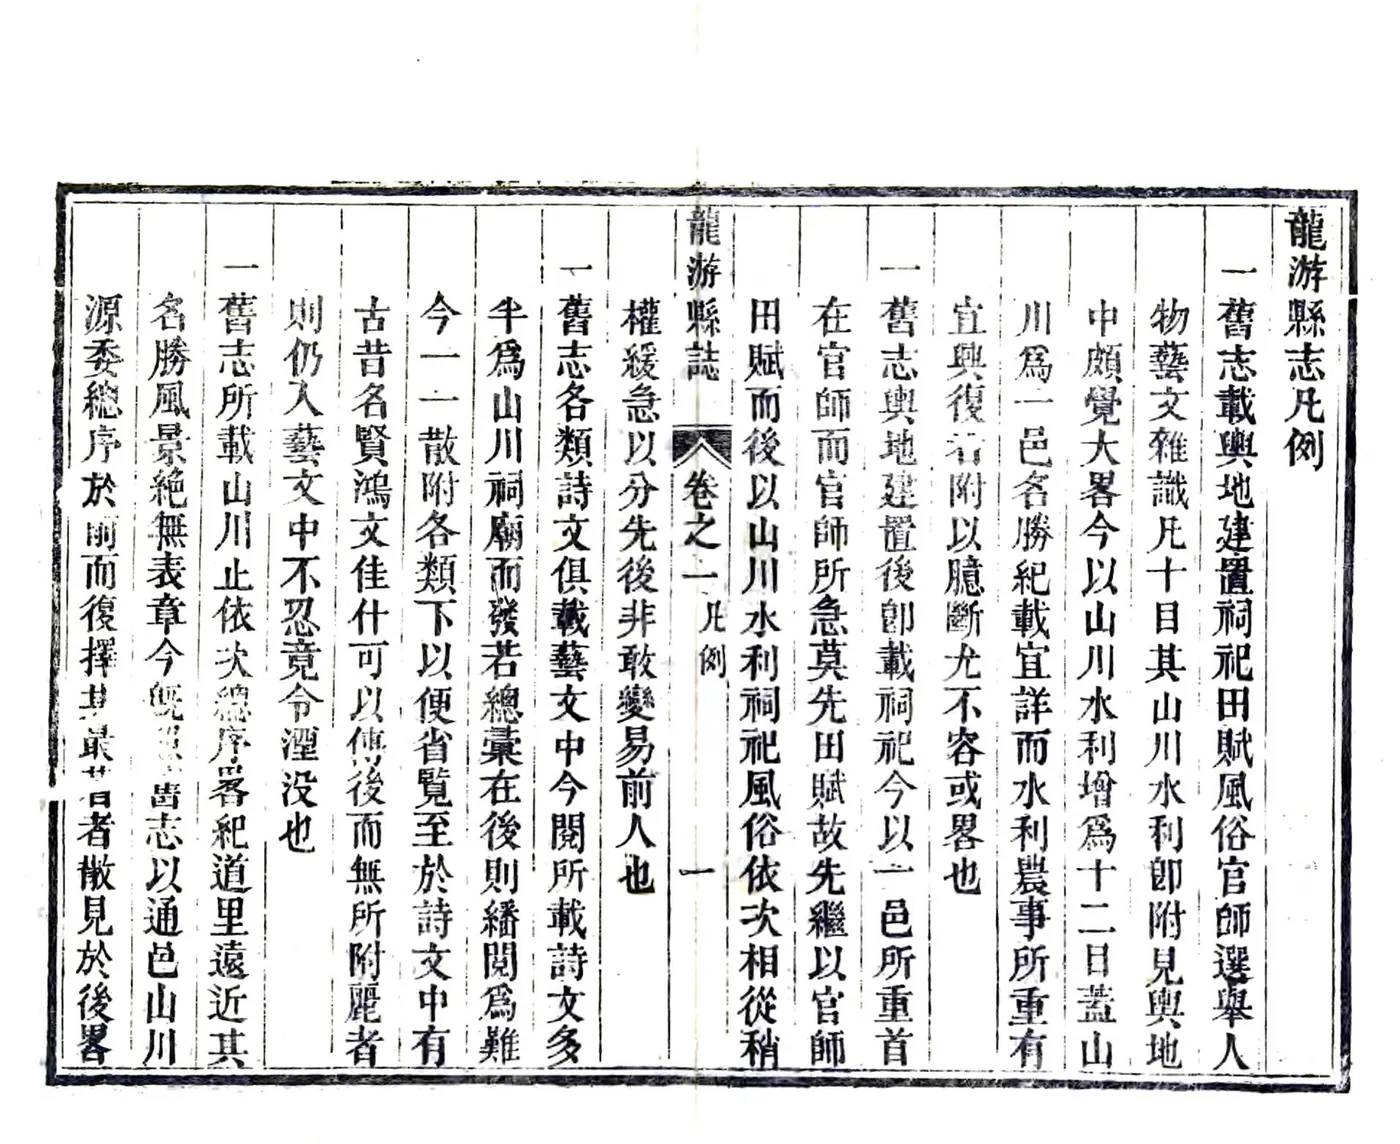 龍游縣志凡例
一舊志載輿地建置祠祀田賦風俗官師選舉人
物藝文雜識凡十目其山川水利卽附見輿地
中頗覺大畧今以山川水利增爲十二目蓋山
川爲一邑名勝紀載宜詳而水利農事所重有
宜興復者附以臆斷尤不容或畧也
一舊志輿地建置後卽載祠祀今以一邑所重首
在官師而官師所急莫先田賦故先繼以官師
田賦而後以山川水利祠祀風俗依次相從稍
龍游縣誌 卷之一 凡例 一
權緩急以分先後非敢變易前人也
一舊志各類詩文俱載藝文中今閱所載詩文多
半爲山川祠廟而發若總彙在後則繙閱爲難
今一一散附各類下以便省覧至於詩文中有
古昔名賢鴻文佳什可以傳後而無所附麗者
則仍入藝文中不忍竟令湮没也
一舊志所載山川止依次總序畧紀道里遠近其
名勝風景絶無表章今旣志以通邑山川
源委總序於前而復擇其最著者散見於後畧